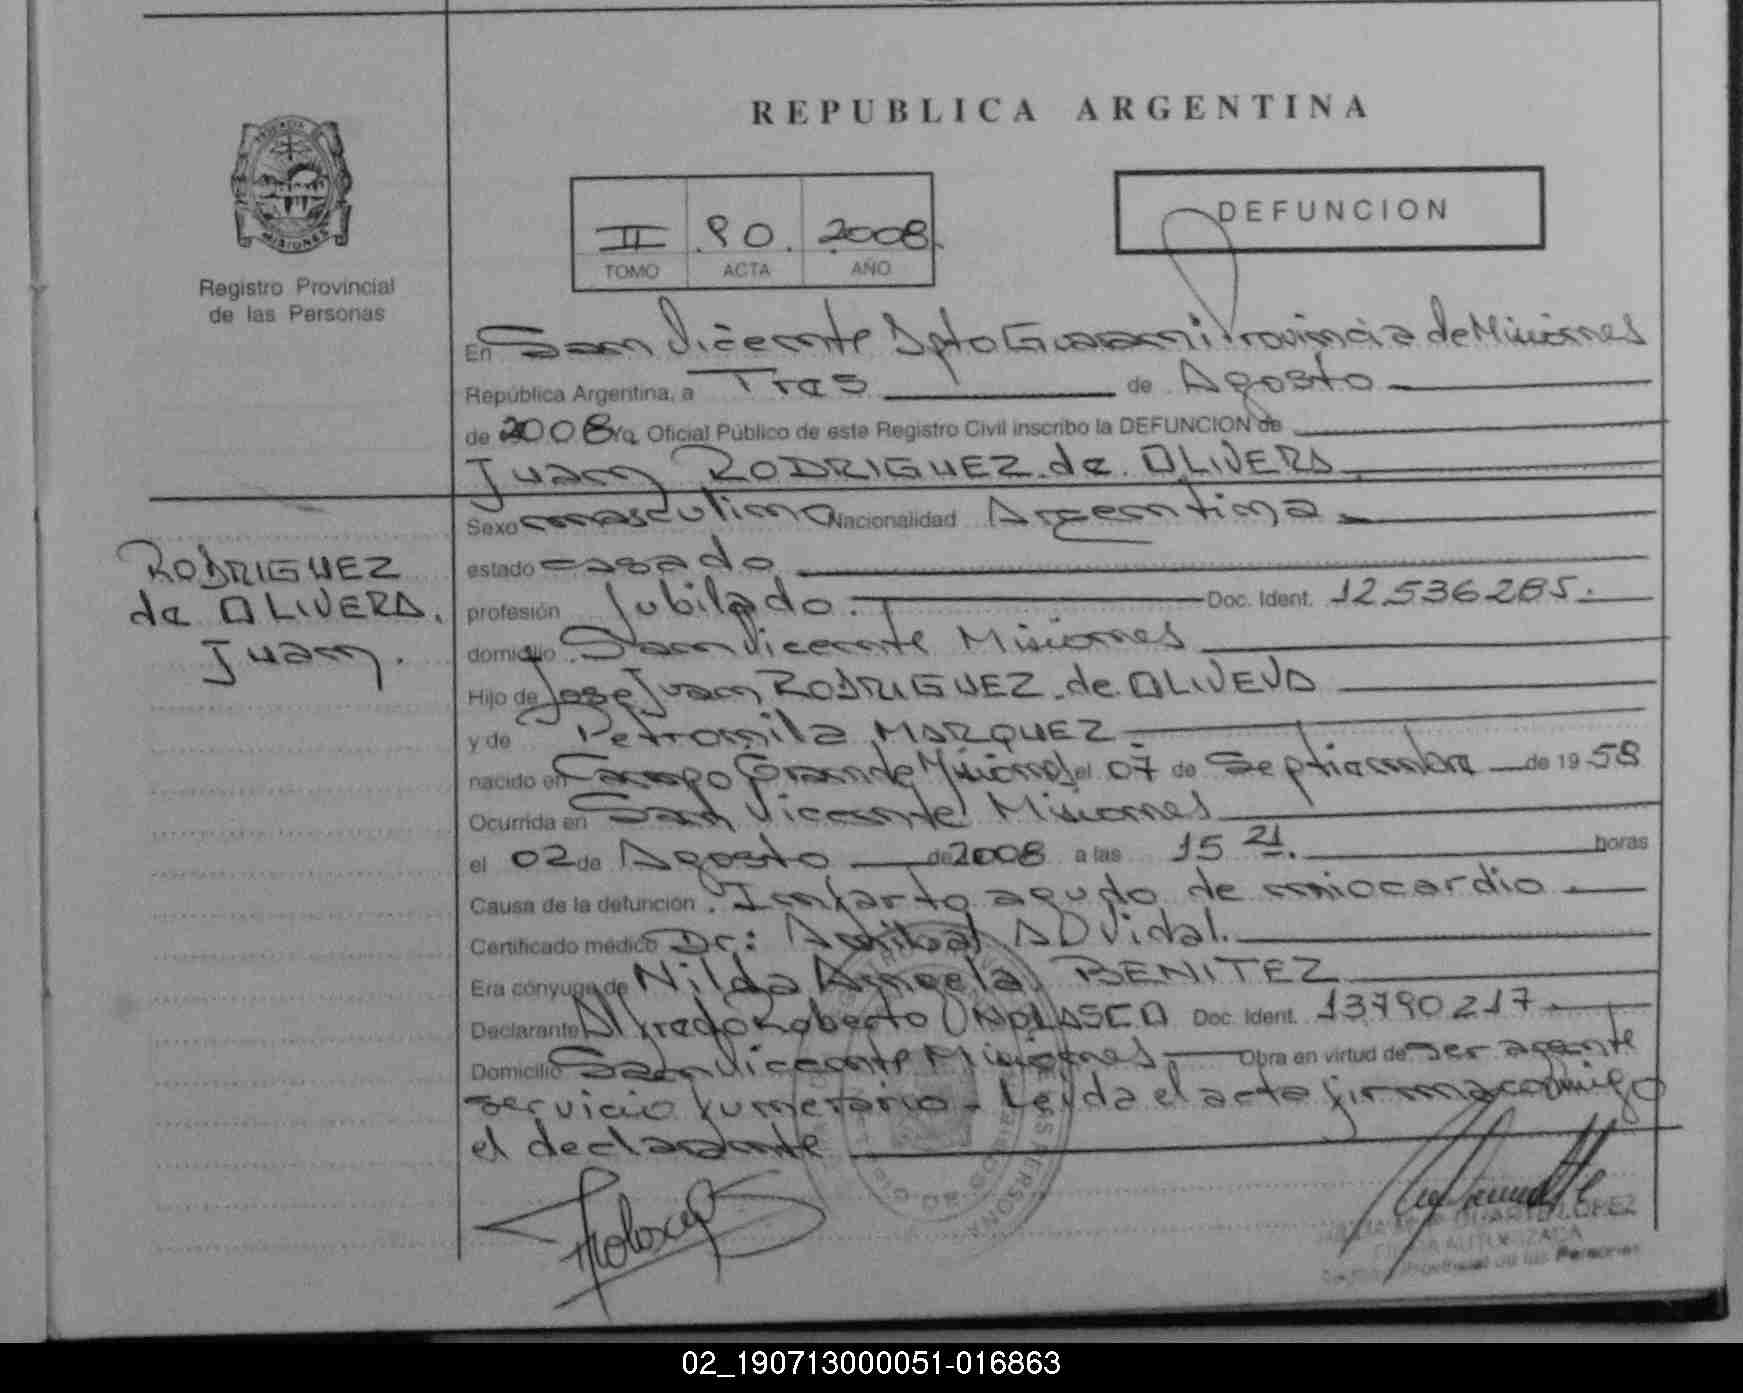 REPUBLICA ARGENTINA
PROVINCIA DE
MISIONES
Registro Provincial
de las Personas
II 90. 2008
TOMO ACTA AÑO
DEFUNCION
En San Vicente Dpto Guarani Provincia de Misiones
República Argentina, a Tres de Agosto
de 2008 Yo, Oficial Público de este Registro Civil inscribo la DEFUNCION de
Juan RODRIGUEZ de OLIVERA
Sexo masculino Nacionalidad Argentina
estado casado
profesión Jubilado. Doc. Ident. 12.536.285.
domicilio San Vicente Misiones
Hijo de Jose Juan RODRIGUEZ de OLIVEVA
y de Petronila MARQUEZ
nacido en Campo Grande Misiones el 07 de Septiembre de 1958
Ocurrida en San Vicente Misiones
el 02 de Agosto de 2008 a las 15 21. horas
Causa de la defunción Infarto agudo de miocardio
Certificado médico Dr: Anibal AD Vidal.
Era cónyuge de Nilda Angela BENITEZ
Declarante Alfredo Roberto Doc. Ident. 13790217
Domicilio San Vicente Misiones Obra en virtud de ser agente
servicio funerario - Leida el acta firma conmigo
el declarante
RODRIGUEZ
de OLIVERA.
Juan.
DUARTE LOPEZ
FIRMA AUTORIZADA
Registro Provincial de las Personas
02_190713000051-016863